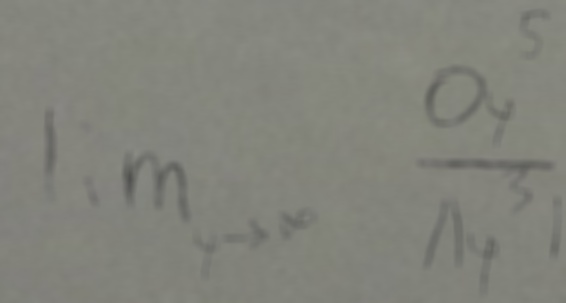 \lim_{y \to \infty} \frac{0y^5}{1y^3 1}